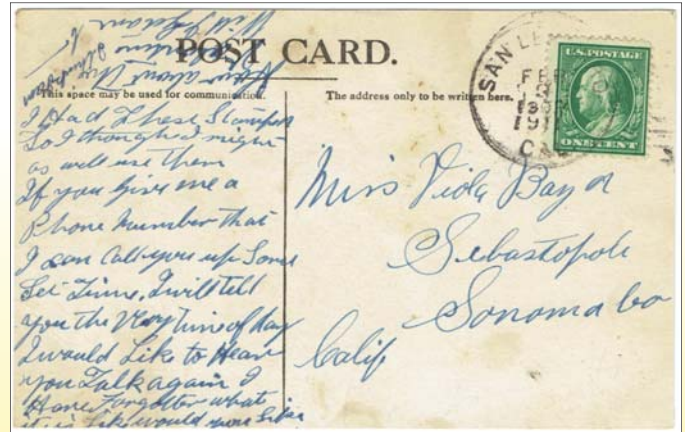 POST CARD.
This space may be used for communication.
The address only to be written here.
SAN LE
FEB
CAL
U.S. POSTAGE
ONE CENT
I Had These Stamps
So I thought I might
as well use them
If you give me a
Phone Number that
I can Call you up Some
Set Time, I will tell
you the Very time of day
I would Like to Hear
you Talk again I
Have Forgotten what
it is like would you
Miss Viola Bayd
Sebastopole
Sonoma Co
Calif